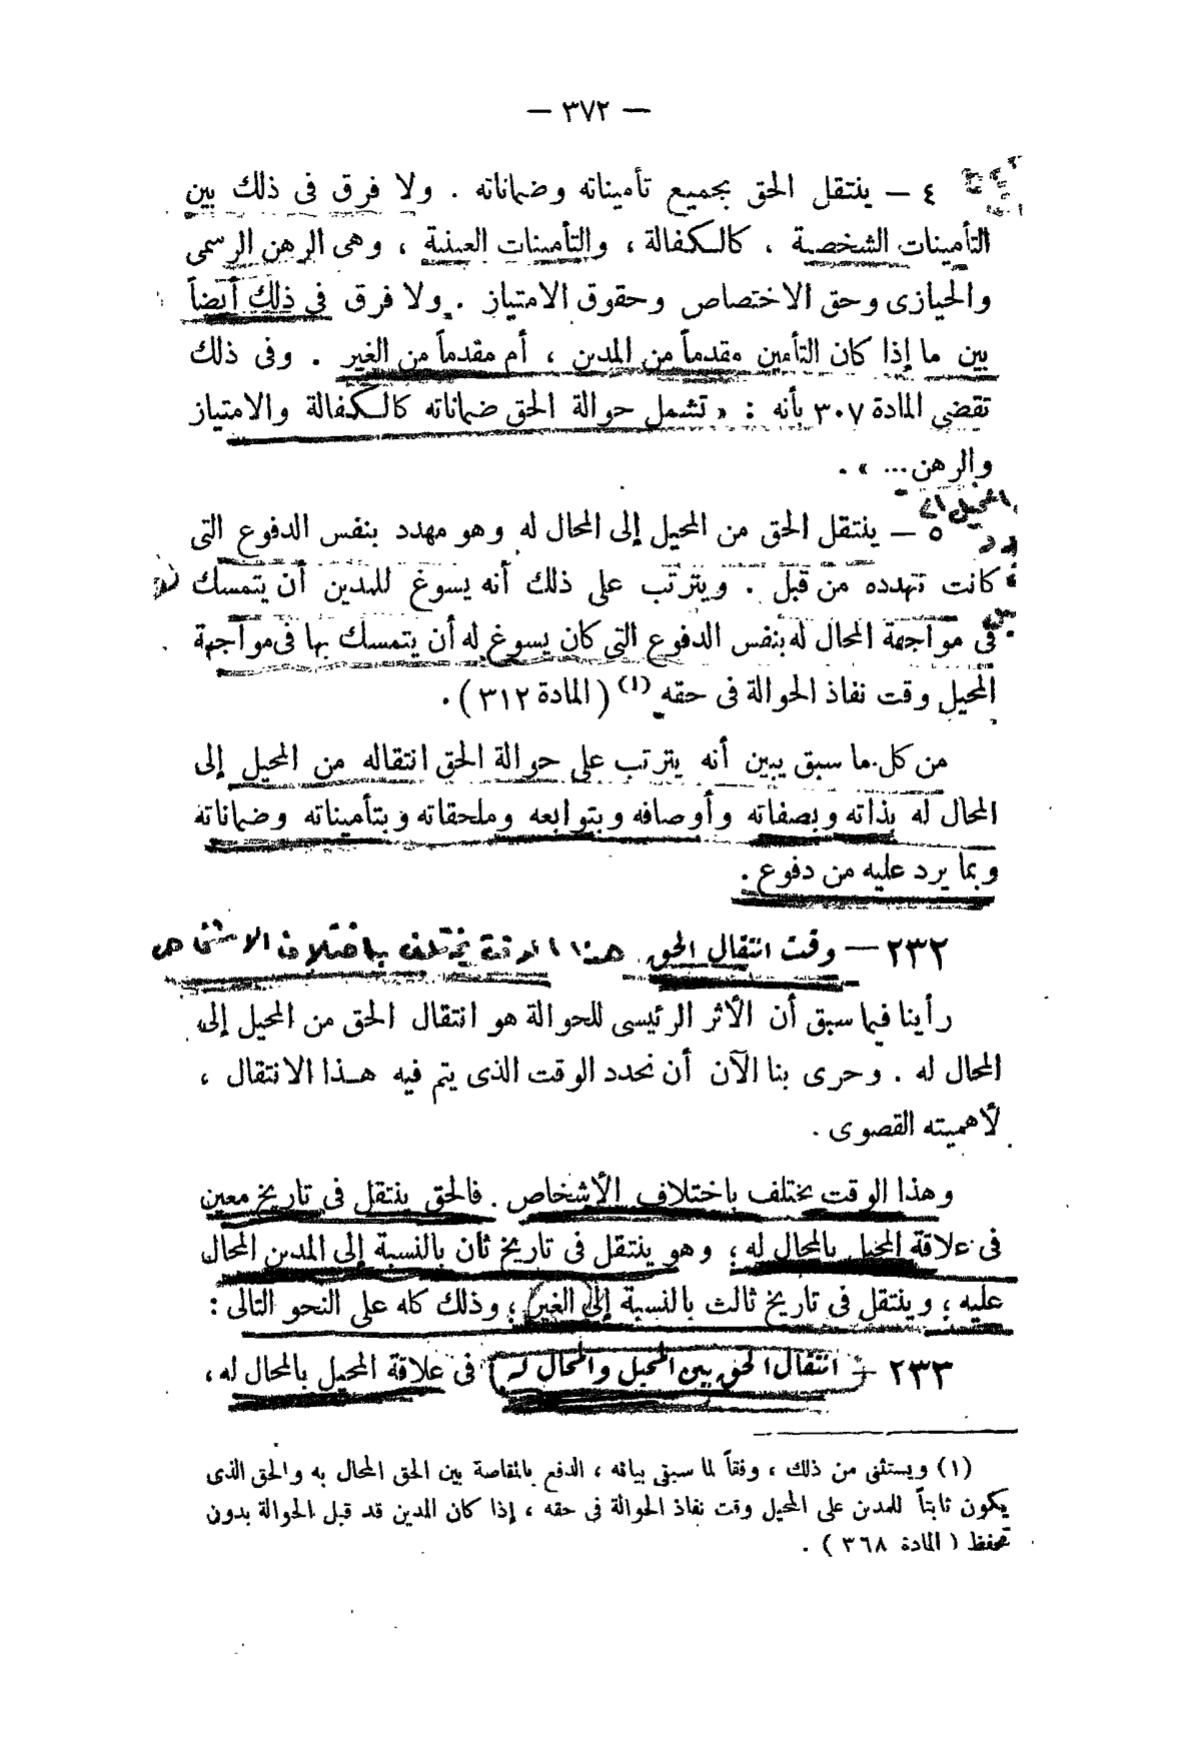 — ٣٧٢ —
٤ — ينتقل الحق بجميع تأميناته وضماناته . ولا فرق فى ذلك بين
التأمينات الشخصية ، كالكفالة ، والتأمينات العينية ، وهى الرهن الرسمى
والحيازى وحق الاختصاص وحقوق الامتياز . ولا فرق فى ذلك أيضاً
بين ما إذا كان التأمين مقدماً من المدين ، أم مقدماً من الغير . وفى ذلك
تقضى المادة ٣٠٧ بأنه : « تشمل حوالة الحق ضماناته كالكفالة والامتياز
والرهن ... » .
٥ — ينتقل الحق من المحيل إلى المحال له وهو مهدد بنفس الدفوع التى
كانت تهدده من قبل . ويترتب على ذلك أنه يسوغ للمدين أن يتمسك
فى مواجهة المحال له بنفس الدفوع التى كان يسوغ له أن يتمسك بها فى مواجهة
المحيل وقت نفاذ الحوالة فى حقه (١) ( المادة ٣١٢ ) .
من كل ما سبق يبين أنه يترتب على حوالة الحق انتقاله من المحيل إلى
المحال له بذاته وبصفاته وأوصافه وبتوابعه وملحقاته وبتأميناته وضماناته
وبما يرد عليه من دفوع .
٢٣٢ — وقت انتقال الحق هذا الوقت يختلف باختلاف الاشخاص
رأينا فيما سبق أن الأثر الرئيسى للحوالة هو انتقال الحق من المحيل إلى
المحال له . وحرى بنا الآن أن نحدد الوقت الذى يتم فيه هـذا الانتقال ،
لأهميته القصوى .
وهذا الوقت يختلف باختلاف الأشخاص . فالحق ينتقل فى تاريخ معين
فى علاقة المحيل بالمحال له ؛ وهو ينتقل فى تاريخ ثان بالنسبة إلى المدين المحال
عليه ؛ وينتقل فى تاريخ ثالث بالنسبة إلى الغير ؛ وذلك كله على النحو التالى :
٢٣٣ — انتقال الحق بين المحيل والمحال له فى علاقة المحيل بالمحال له ،
(١) ويستثنى من ذلك ، وفقاً لما سبق بيانه ، الدفع بالمقاصة بين الحق المحال به والحق الذى
يكون ثابتاً للمدين على المحيل وقت نفاذ الحوالة فى حقه ، إذا كان المدين قد قبل الحوالة بدون
تحفظ ( المادة ٣٦٨ ) .